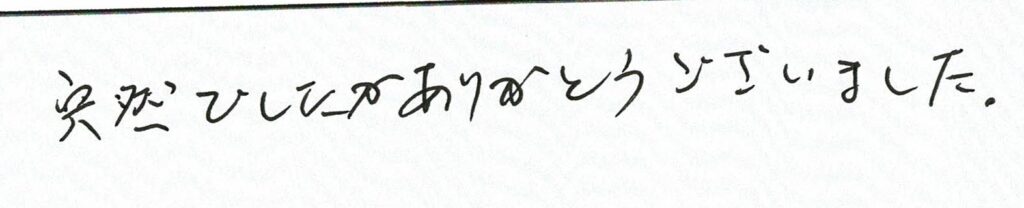 突然でしたがありがとうございました.